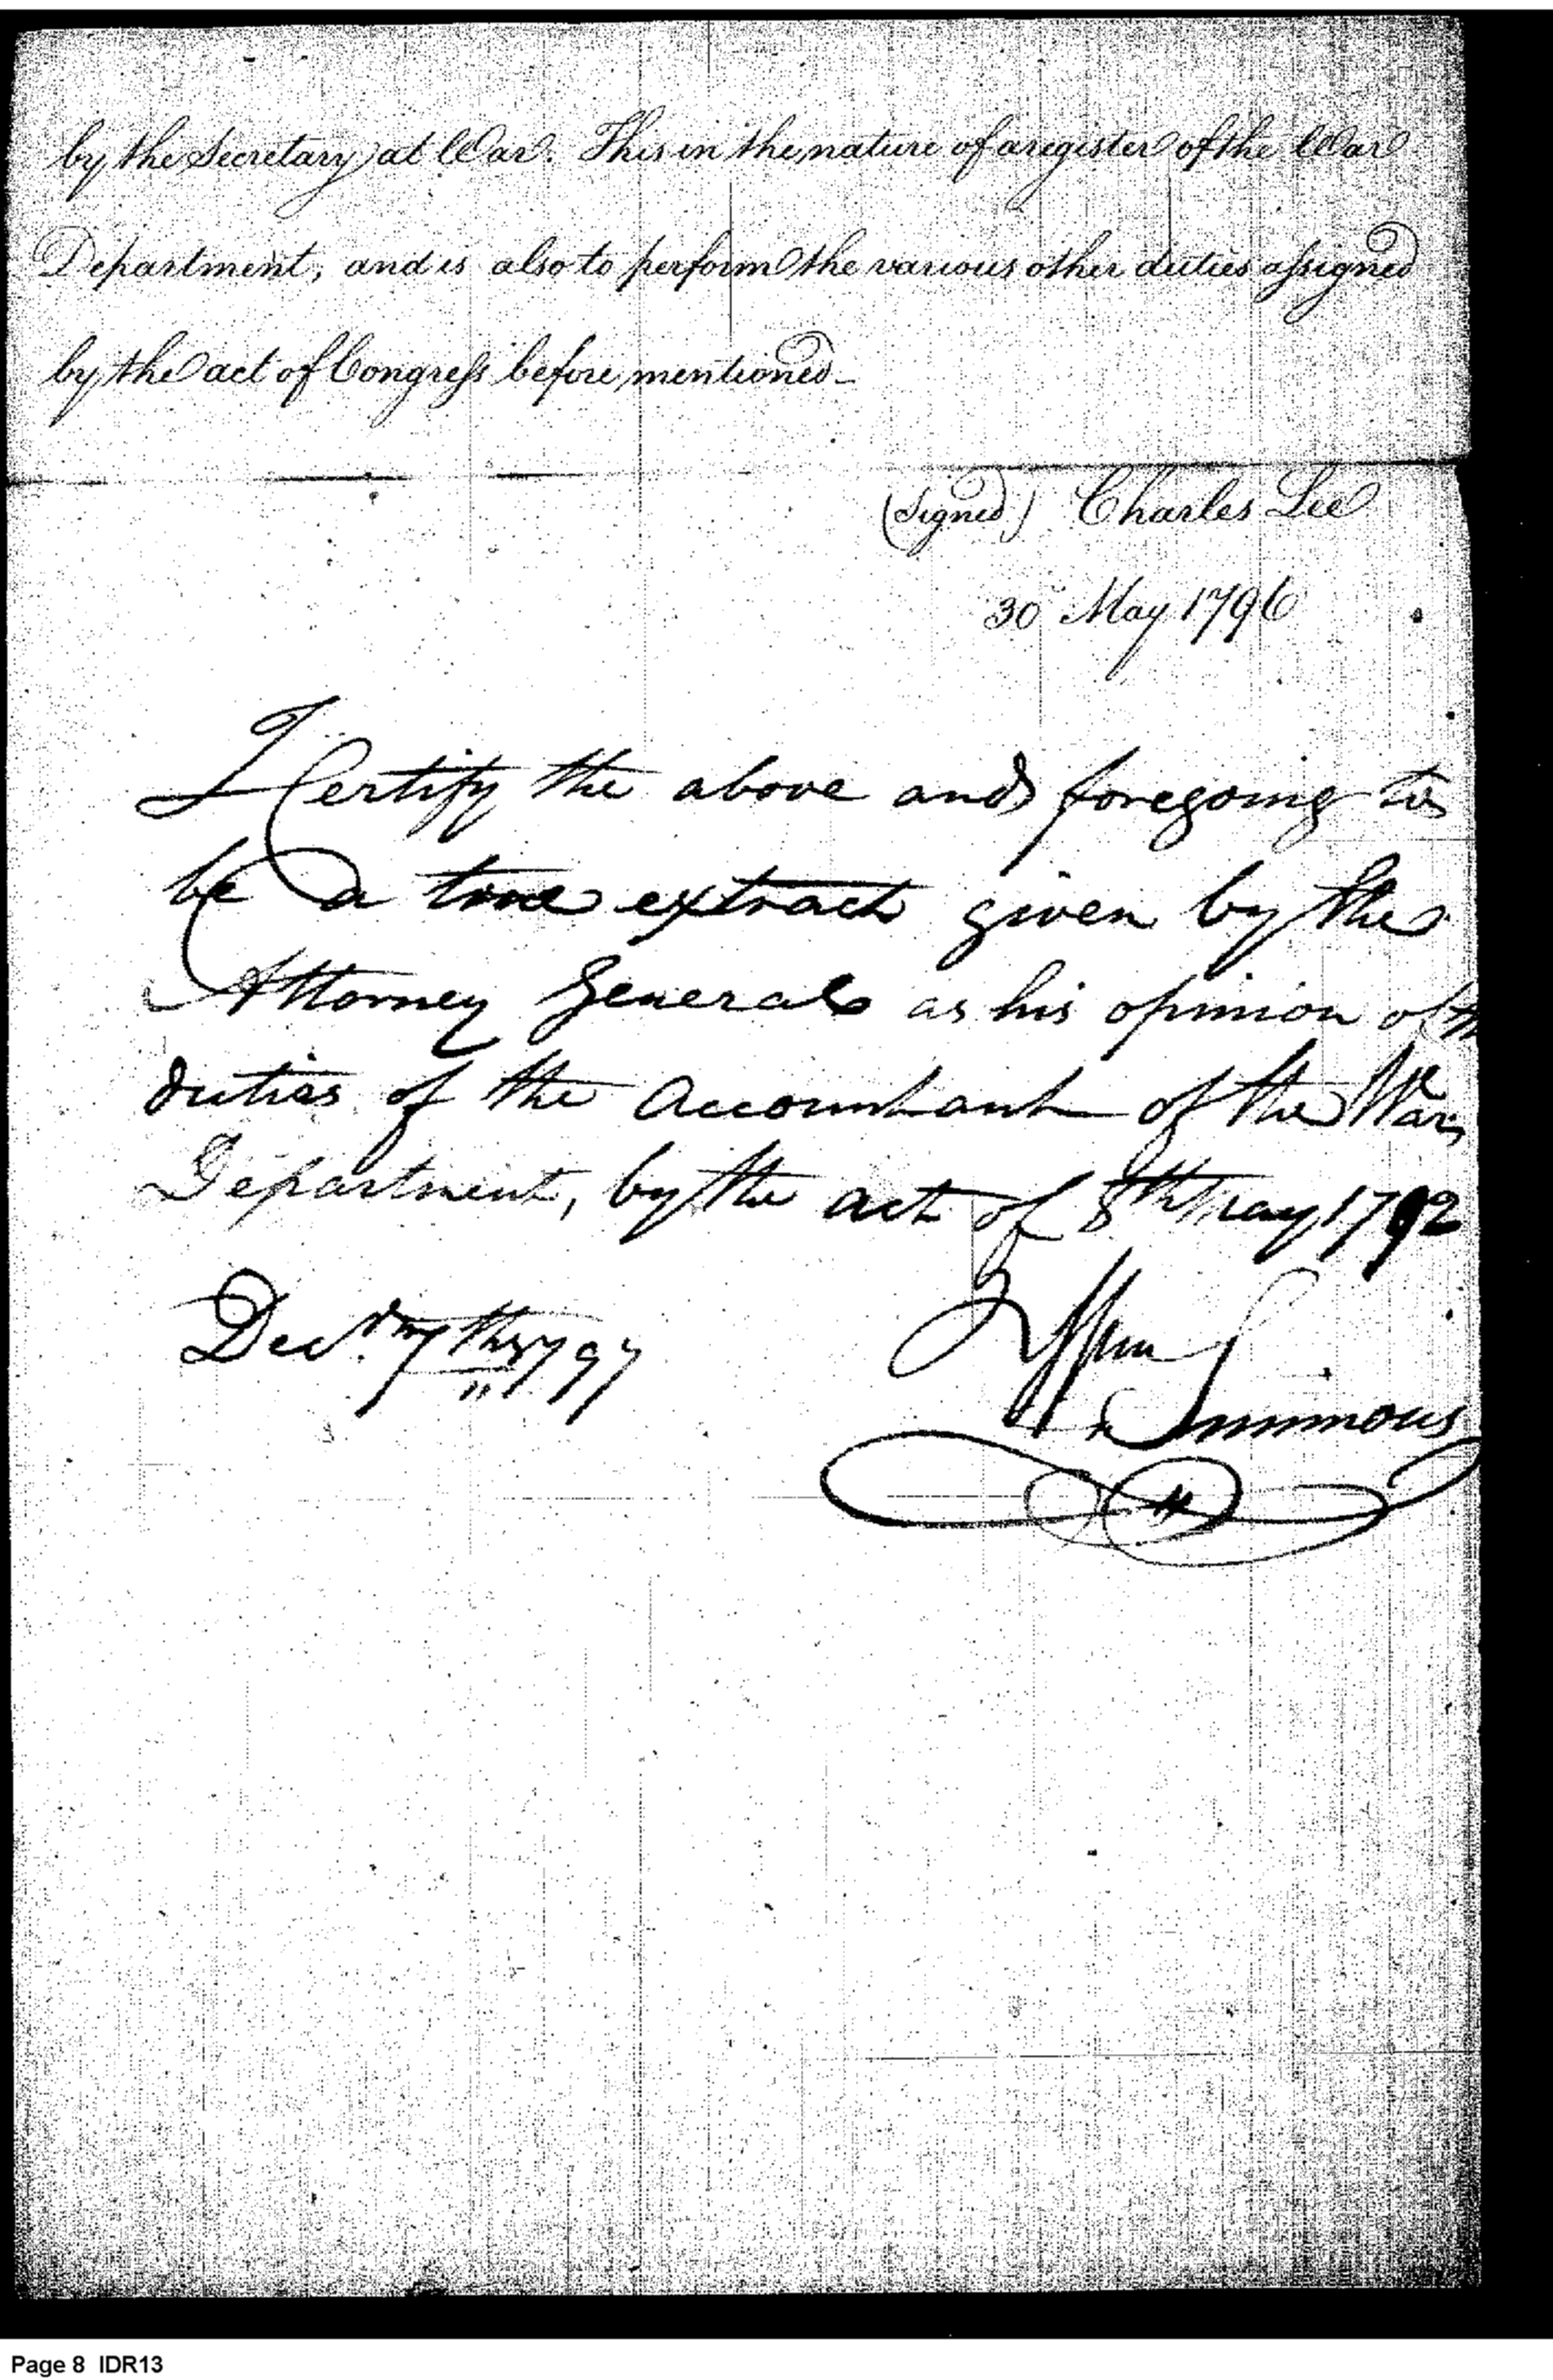 by the Secretary at War. This in the nature of a register of the War
Department, and is also to perform the various other duties assigned
by the act of Congress before mentioned_
(signed) Charles Lee
30 May 1796
I Certify the above and foregoing to
be a true extract given by the
Attorney General as his opinion of th
duties of the Accountant of the War
Department, by the act of 8th May 1792
Decr. 7th 1797
Wm Simmons
Page 8 IDR13